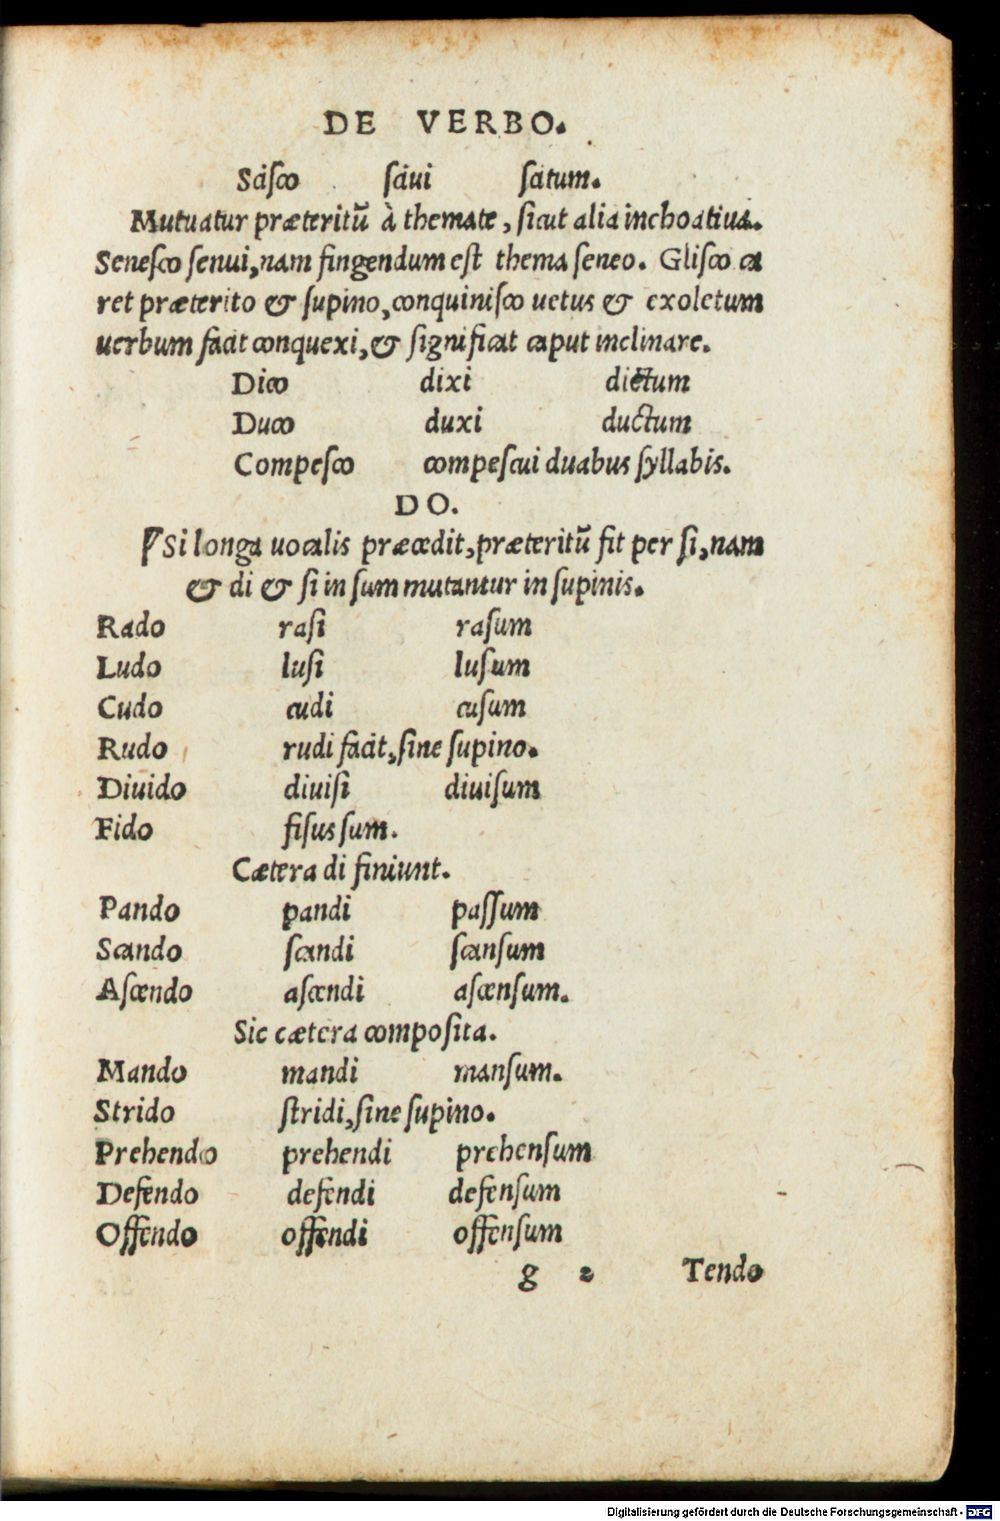 DE VERBO.
Sciſco ſciui ſcitum.
Mutuatur præteritū à themate, ſicut alia inchoatiua.
Seneſco ſenui, nam fingendum eſt thema ſeneo. Gliſco ca
ret præterito & ſupino, conquiniſco uetus & exoletum
uerbum facit conquexi, & ſignificat caput inclinare.
Dico dixi dictum
Duco duxi ductum
Compeſco compeſcui duabus ſyllabis.
DO.
Si longa uocalis præcedit, præteritū fit per ſi, nam
& di & ſi in ſum mutantur in ſupinis.
Rado raſi raſum
Ludo luſi luſum
Cudo cudi cuſum
Rudo rudi facit, ſine ſupino.
Diuido diuiſi diuiſum
Fido fiſus ſum.
Cætera di finiunt.
Pando pandi paſſum
Scando ſcandi ſcanſum
Aſcendo aſcendi aſcenſum.
Sic cætera compoſita.
Mando mandi manſum.
Strido ſtridi, ſine ſupino.
Prehendo prehendi prehenſum
Defendo defendi defenſum
Offendo offendi offenſum
g 2 Tendo
Digitalisierung gefördert durch die Deutsche Forschungsgemeinschaft - DFG